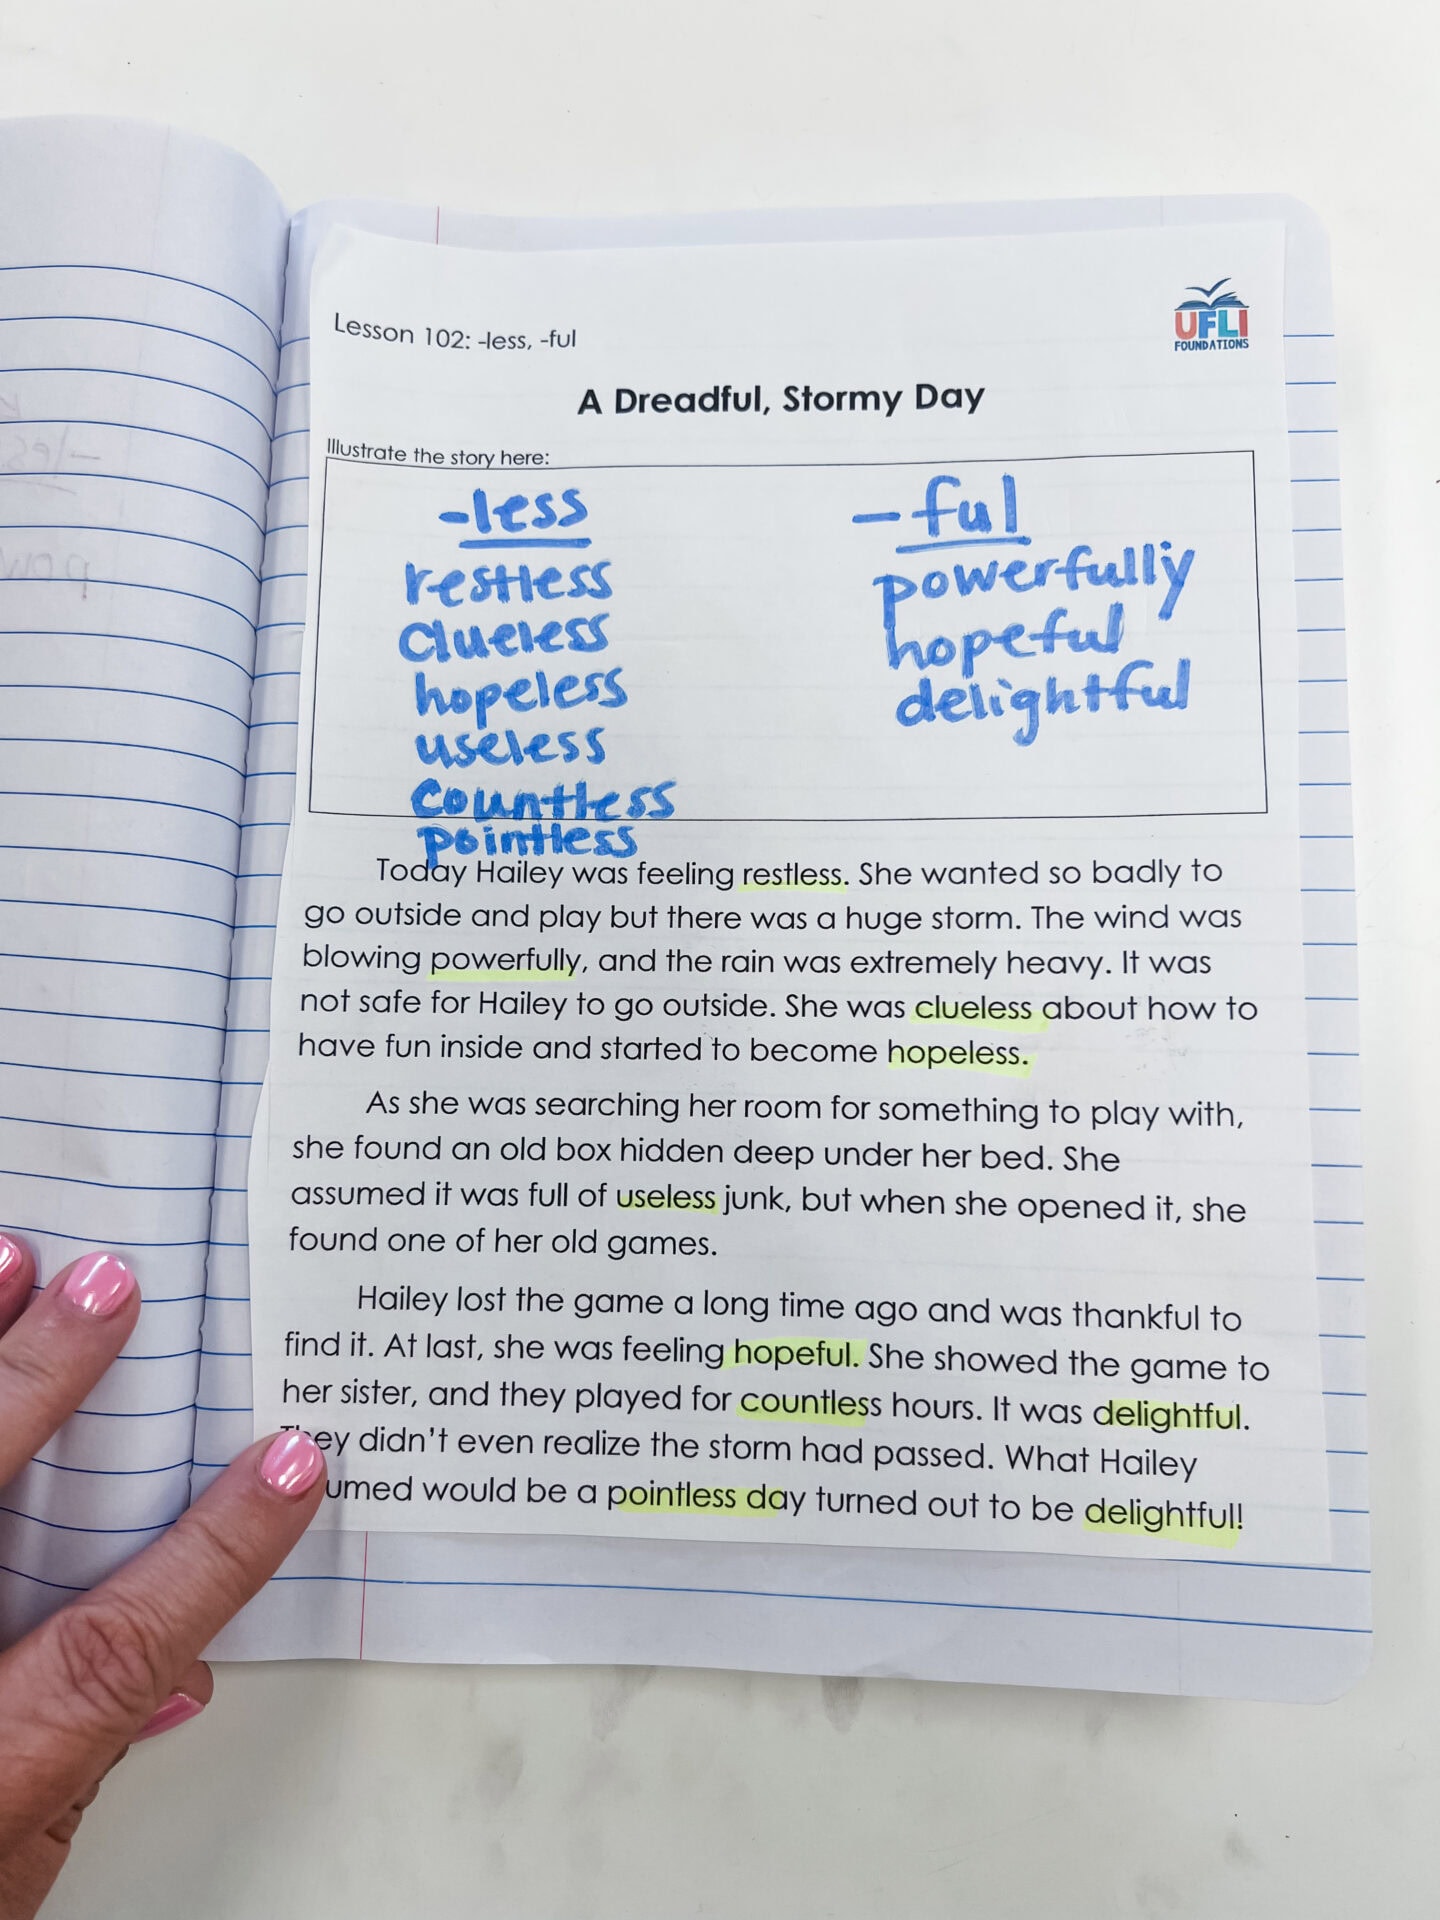 Lesson 102: -less, -ful
UFLI
FOUNDATIONS
A Dreadful, Stormy Day
Illustrate the story here:
-less
restless
clueless
hopeless
useless
countless
pointless
-ful
powerfully
hopeful
delightful
Today Hailey was feeling restless. She wanted so badly to
go outside and play but there was a huge storm. The wind was
blowing powerfully, and the rain was extremely heavy. It was
not safe for Hailey to go outside. She was clueless about how to
have fun inside and started to become hopeless.
As she was searching her room for something to play with,
she found an old box hidden deep under her bed. She
assumed it was full of useless junk, but when she opened it, she
found one of her old games.
Hailey lost the game a long time ago and was thankful to
find it. At last, she was feeling hopeful. She showed the game to
her sister, and they played for countless hours. It was delightful.
They didn't even realize the storm had passed. What Hailey
umed would be a pointless day turned out to be delightful!